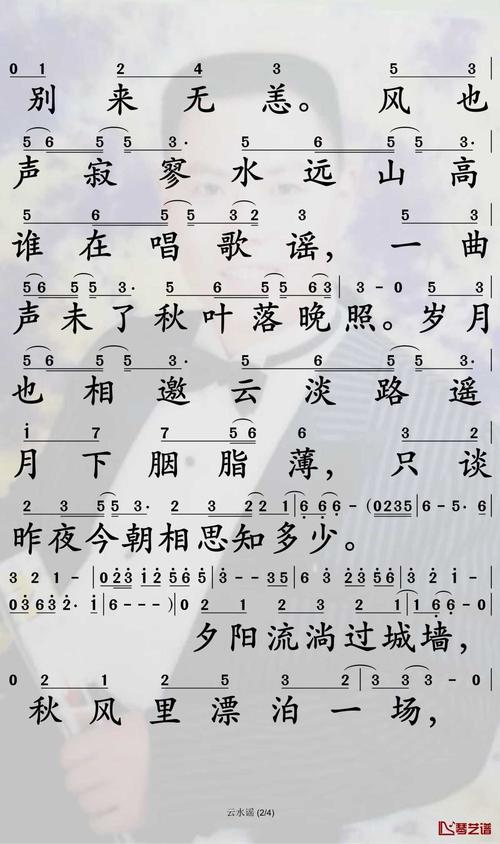 0 1 2 4 3 5 3
别来无恙。风也
5 6 5 5 3· 5 6 5 5 3·
声寂寥水远山高
5 6 5 5 3 2 5 3
谁在唱歌谣，一曲
5 6 5 5 3· 5 6 5 5 6 3 3 - 0 5 3
声未了秋叶落晚照。岁月
5 6 5 5 3· 5 6 5 5 3·
也相邀云淡路遥
i 7 7 5 6 6 3 2
月下胭脂薄，只谈
2 3 5 5 3· 2 3 2 2 1 6 6 6 - (0 2 3 5 6 - 5· 6
昨夜今朝相思知多少。
3 2 1 - 0 2 3 1 2 5 6 5 3 - - 3 5 6 3 2 3 5 1 2 1 6 5 3 - - -
0 3 6 3 2· 1 6 - - -) 0 2 1 2 3 2 1 1 6 6 - 0
夕阳流淌过城墙，
0 2 1 2 5 3 2 2 3 3 3 - 0
秋风里漂泊一场，
云水谣 (2/4)
琴艺谱